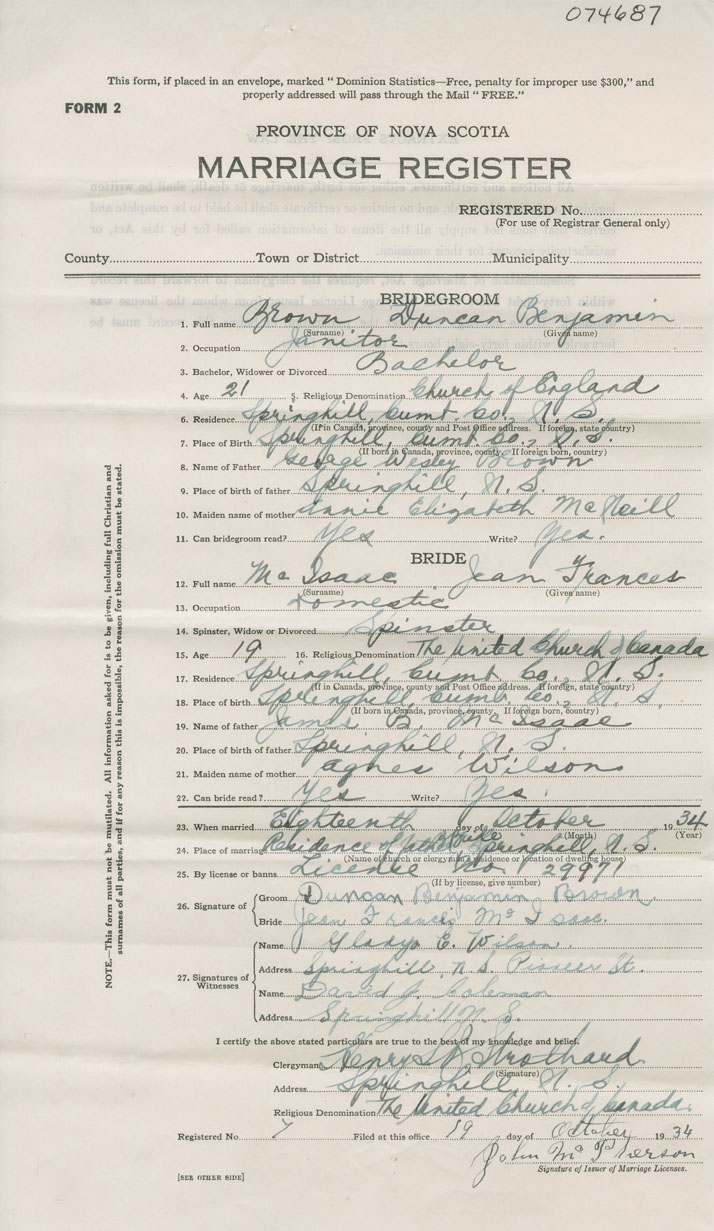 074687
This form, if placed in an envelope, marked “ Dominion Statistics—Free, penalty for improper use $300,” and
properly addressed will pass through the Mail “ FREE.”
FORM 2
PROVINCE OF NOVA SCOTIA
MARRIAGE REGISTER
REGISTERED No.
(For use of Registrar General only)
County Town or District Municipality
BRIDEGROOM
1. Full name Brown Duncan Benjamin
(Surname) (Given name)
2. Occupation Janitor
3. Bachelor, Widower or Divorced Bachelor
4. Age 21 5. Religious Denomination Church of England
6. Residence Springhill, Cumb. Co., N. S.
(If in Canada, province, county and Post Office address. If foreign, state country)
7. Place of Birth Springhill, Cumb. Co., N. S.
(If born in Canada, province, county. If foreign born, country)
8. Name of Father George Wesley Brown
9. Place of birth of father Springhill, N. S.
10. Maiden name of mother Annie Elizabeth McNeill
11. Can bridegroom read? Yes Write? Yes.
BRIDE
12. Full name McIsaac Jean Frances
(Surname) (Given name)
13. Occupation Domestic
14. Spinster, Widow or Divorced Spinster
15. Age 19 16. Religious Denomination The United Church of Canada
17. Residence Springhill, Cumb. Co., N. S.
(If in Canada, province, county and Post Office address. If foreign, state country)
18. Place of birth Springhill, Cumb. Co., N. S.
(If born in Canada, province, county. If foreign born, country)
19. Name of father James B. McIsaac
20. Place of birth of father Springhill, N. S.
21. Maiden name of mother Agnes Wilson
22. Can bride read? Yes Write? Yes.
23. When married Eighteenth day of October 1934
(Month) (Year)
24. Place of marriage Residence of father Springhill, N. S.
(Name of church or clergyman's residence or location of dwelling house)
25. By license or banns License No 29971
(If by license, give number)
26. Signature of Groom Duncan Benjamin Brown
Bride Jean Francis McIsaac.
27. Signatures of Witnesses
Name Gladys E. Wilson.
Address Springhill, N S. Pioneer St.
Name David J. Coleman
Address Springhill N. S.
I certify the above stated particulars are true to the best of my knowledge and belief.
Clergyman Henry Strothard
(Signature)
Address Springhill, N. S.
Religious Denomination The United Church of Canada.
Registered No 7 Filed at this office 19 day of October 1934
John McPherson
Signature of Issuer of Marriage Licenses.
[SEE OTHER SIDE]
NOTE.—This form must not be mutilated. All information asked for is to be given, including full Christian and
surnames of all parties, and if for any reason this is impossible, the reason for the omission must be stated.